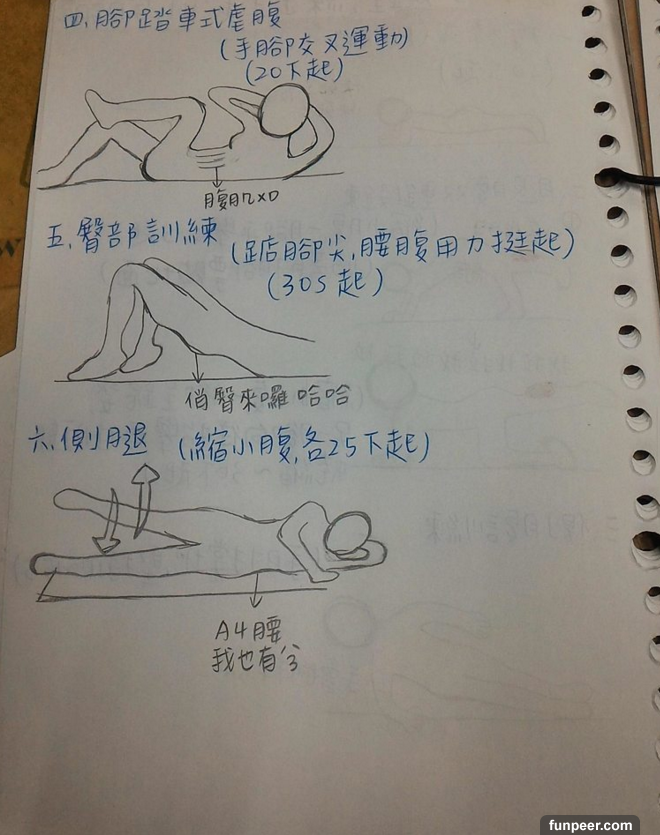 四.腳踏車式虐腹
(手腳交叉運動)
(20下起)
腹肌XD
五.臀部訓練
(踮腳尖,腰腹用力挺起)
(30S起)
俏臀來囉哈哈
六.側腿
(縮小腹,各25下起)
A4腰
我也有
funpeer.com